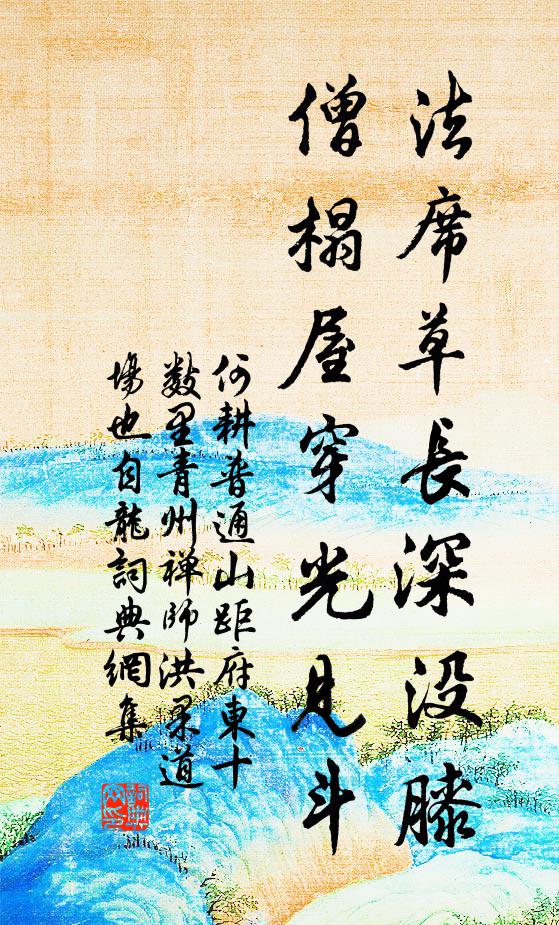 法席草長深没膝
僧榻屋穿光見斗
何耕普通山距府東十
數里青州禅師洪杲道
場也自龍詞典網集